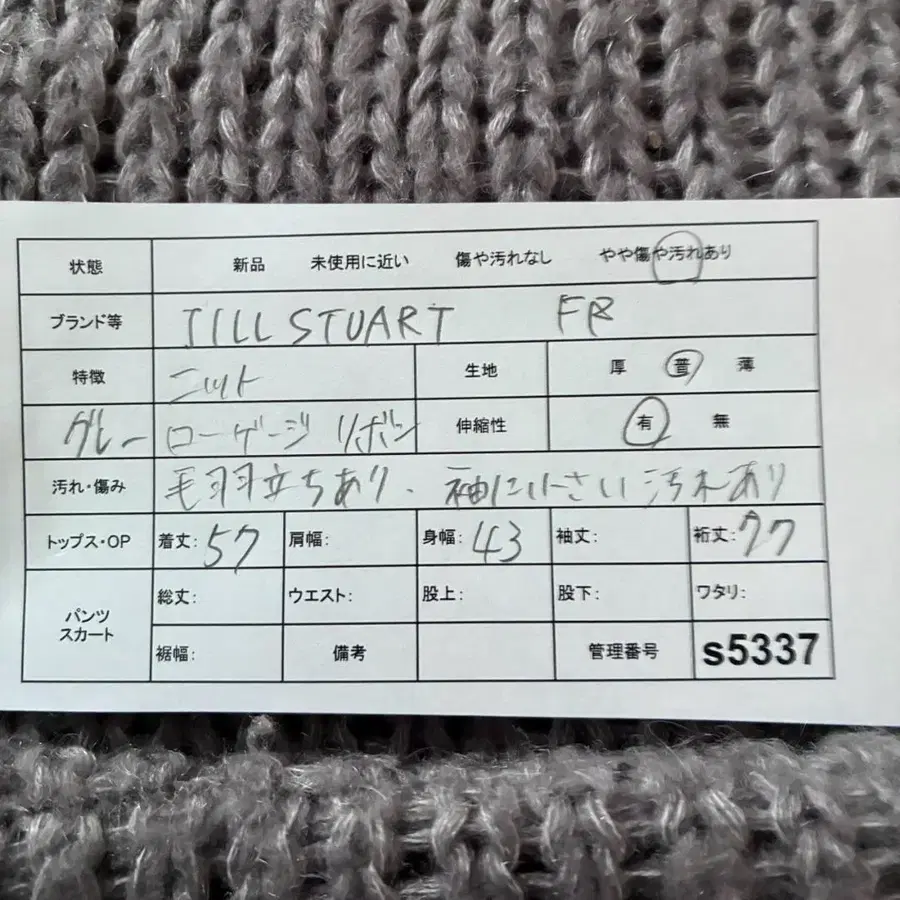 状態 新品 未使用に近い 傷や汚れなし やや傷や汚れあり
ブランド等 JILL STUART FR
特徴 ニット 生地 厚 普 薄
グレー ローゲージ リボン 伸縮性 有 無
汚れ・傷み 毛羽立ちあり、袖に小さい汚れあり
トップス・OP 着丈: 57 肩幅: 身幅: 43 袖丈: 裄丈: 77
パンツ スカート 総丈: ウエスト: 股上: 股下: ワタリ:
裾幅: 備考 管理番号 s5337